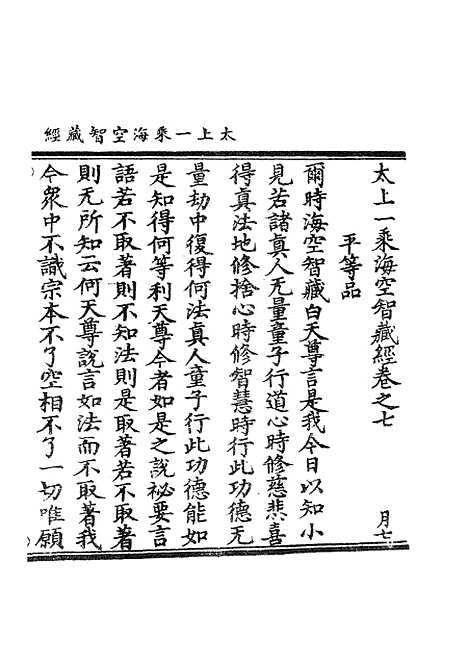 經藏智空海乘一上太
太上一乘海空智藏經卷之七
月七
平等品
爾時海空智藏白天尊言是我今日以知小
見若諸真人无量童子行道心時修慈悲喜
得真法地修捨心時修智慧時行此功德无
量劫中復得何法真人童子行此功德能如
是知得何等利天尊今者如是之說祕要言
語若不取著則不知法則是取著若不取著
則无所知云何天尊說言如法而不取著我
今眾中不識宗本不了空相不了一切唯願